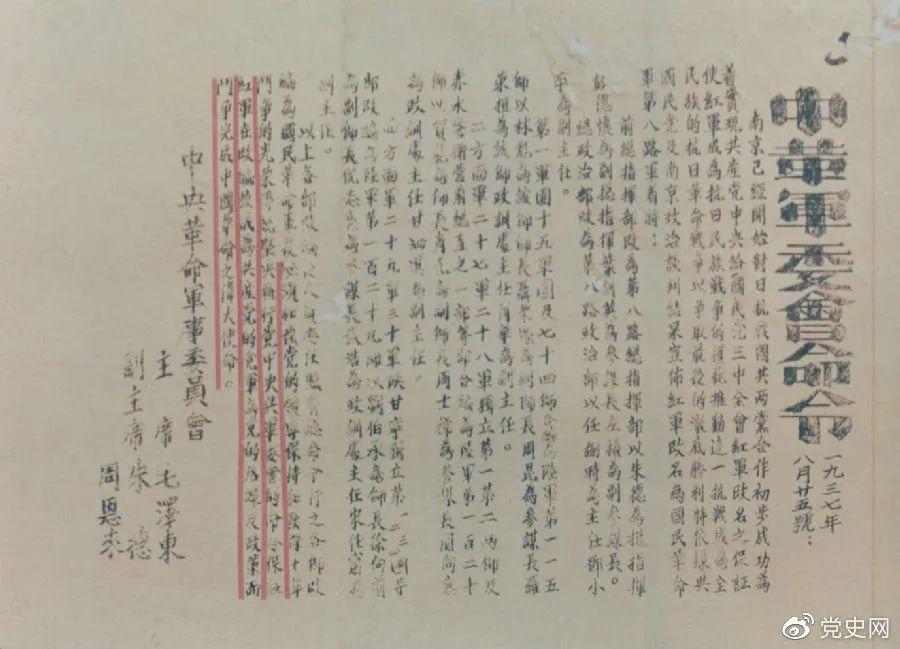 中革軍委會命令
一九三七年
八月廿五號：
南京已經開始對日抗戰國共兩黨合作初步成功為
着實現共產党中央給國民党三中全會紅軍改名之保証
使紅軍成為抗日民族戰爭的模範推動這一抗戰成為全
民族的抗日革命戰爭以爭取最後的澈底勝利特依據與
國民党及南京政治談判結果宣佈紅軍改名為國民革命
軍第八路軍着將：
前總指揮部改為第八路總指揮部以朱德為總指揮
彭德懷為副總指揮葉劍英為參謀長左權為副參謀長。
總政治部改為第八路政治部以任弼時為主任鄧小
平為副主任。
第一軍團十五軍團及七十四師合編為陸軍第一一五
師以林彪為該師師長聶榮臻為副師長周昆為參謀長羅
榮桓為該師政訓處主任蕭華為副主任。
二方面軍二十七軍二十八軍獨立第一第二兩師及
赤水警衛營前總直之一部等部合編為陸軍第一百二十
師以賀龍為師長蕭克為副師長周士第為參謀長關向應
為政訓處主任甘泗淇為副主任。
四方面軍二十九軍三十軍陝甘寧獨立第一二三四等
部改編為陸軍第一百二十九師以劉伯承為師長徐向前
為副師長倪志亮為參謀長張浩為政訓處主任宋任窮為
副主任。
以上各部改編後人員委任照前總命令行之各部改
編為國民革命軍後必須加強党的領導保持和發揮十年
鬥爭的光榮傳統堅決執行党中央與軍委會的命令保証
紅軍在改編後成為共產党的党軍為党的路線及政策而
鬥爭完成中國革命之偉大使命。
中央革命軍事委員會
主席 毛澤東
副主席 朱德
周恩來
党史网